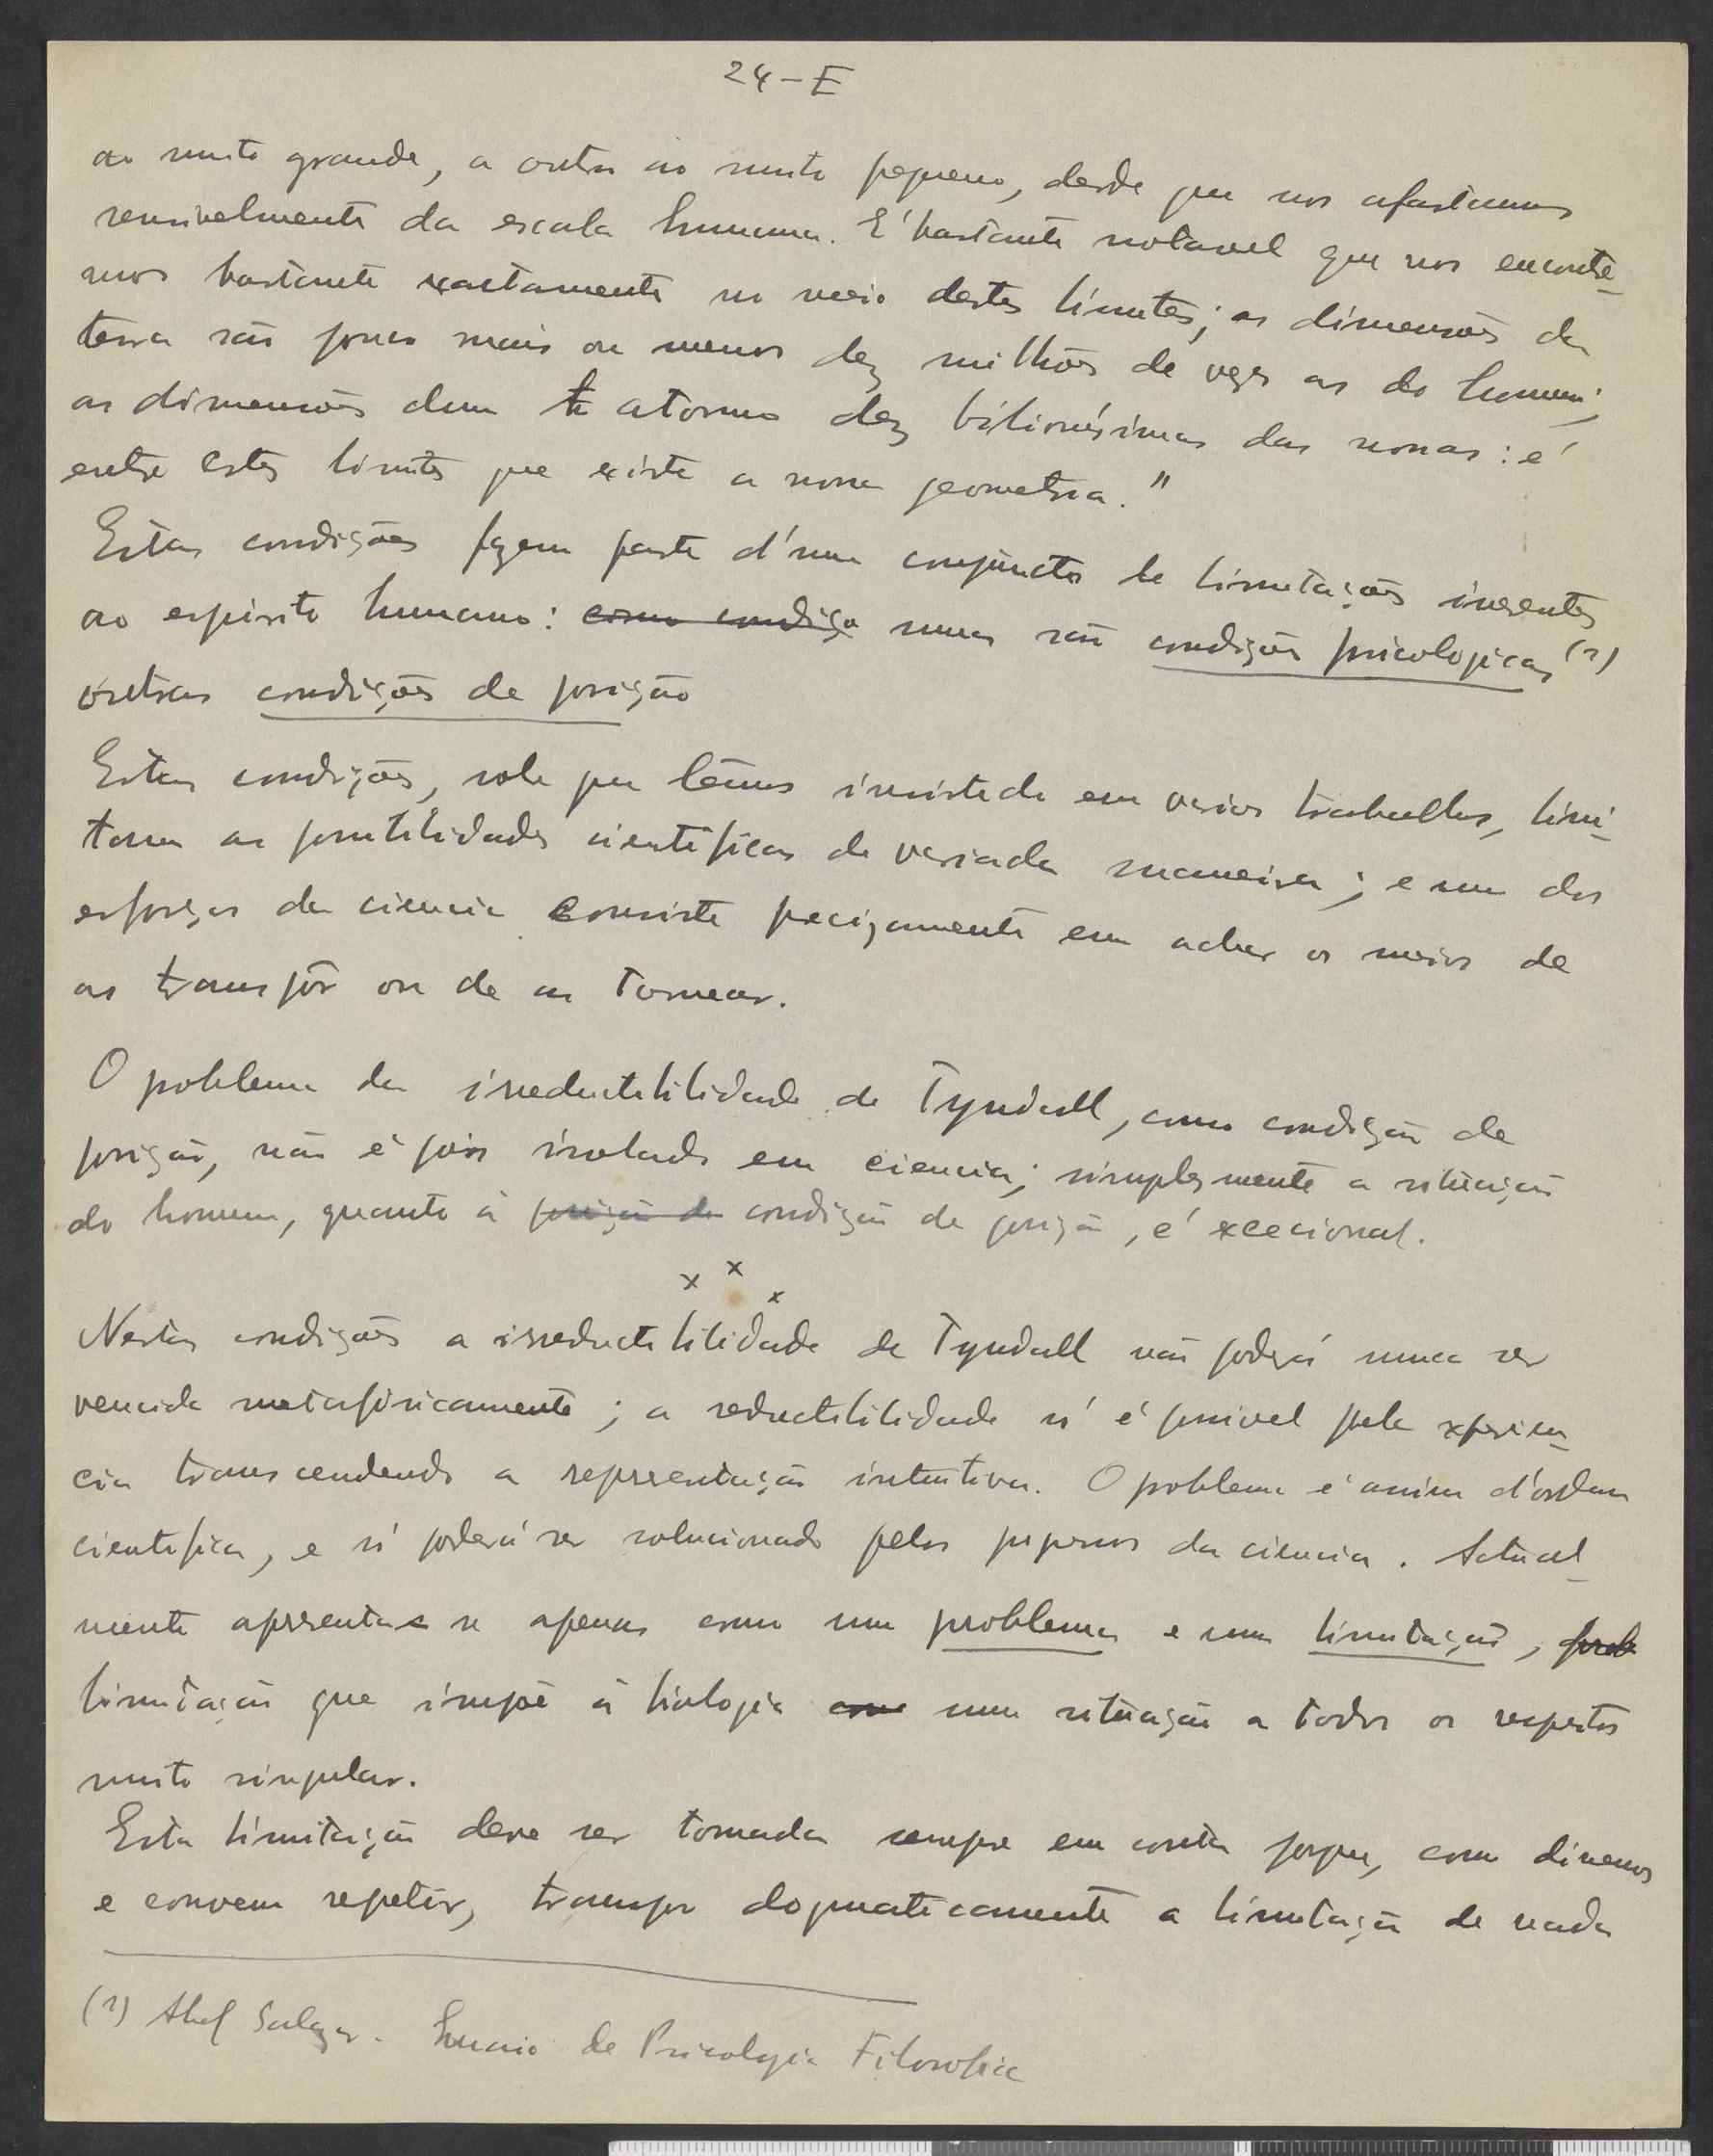 24 - E
ao muito grande, a outra ao muito pequeno, desde que nos afastamos
sensivelmente da escala humana. E' bastante notavel que nos encontre-
mos bastante exactamente no meio destes limites; as dimensões da
terra são pouco mais ou menos dez milhões de vezes as do homem;
as dimensões dum atomo dez bilionésimas das nossas: é
entre estes limites que existe a nossa geometria."
Estas condições fazem parte d'um conjuncto de limitações inerentes
ao espirito humano: como condiça umas são condições psicologicas (1)
outras condições de posição
Estas condições, sobre que temos insistido em varios trabalhos, limi-
tam as possibilidades cientificas de variada maneira; e um dos
esforços da ciencia consiste precizamente em achar os meios de
as transpôr ou de as tornear.
O problema da irreductibilidade de Tyndall, como condição de
posição, não é pois isolado em ciencia; simplesmente a situação
do homem, quanto á posição da condição de posição, é excecional.
x x x
Nestas condições a irreductibilidade de Tyndall não poderá nunca ser
vencida metafisicamente; a reductibilidade só é possivel pela experien-
cia transcendendo a representação intuitiva. O problema é assim d'ordem
cientifica, e só poderá ser solucionado pelos progressos da ciencia. Actual-
mente apresenta se apenas como um problema e uma limitação, prob
limitação que impõe á biologia como uma situação a todos os respeitos
muito singular.
Esta limitação deve ser tomada sempre em conta porque, como dissemos
e convem repetir, transpor dogmaticamente a limitação de nada
(1) Abel Salazar - Ensaio de Psicologia Filosofica